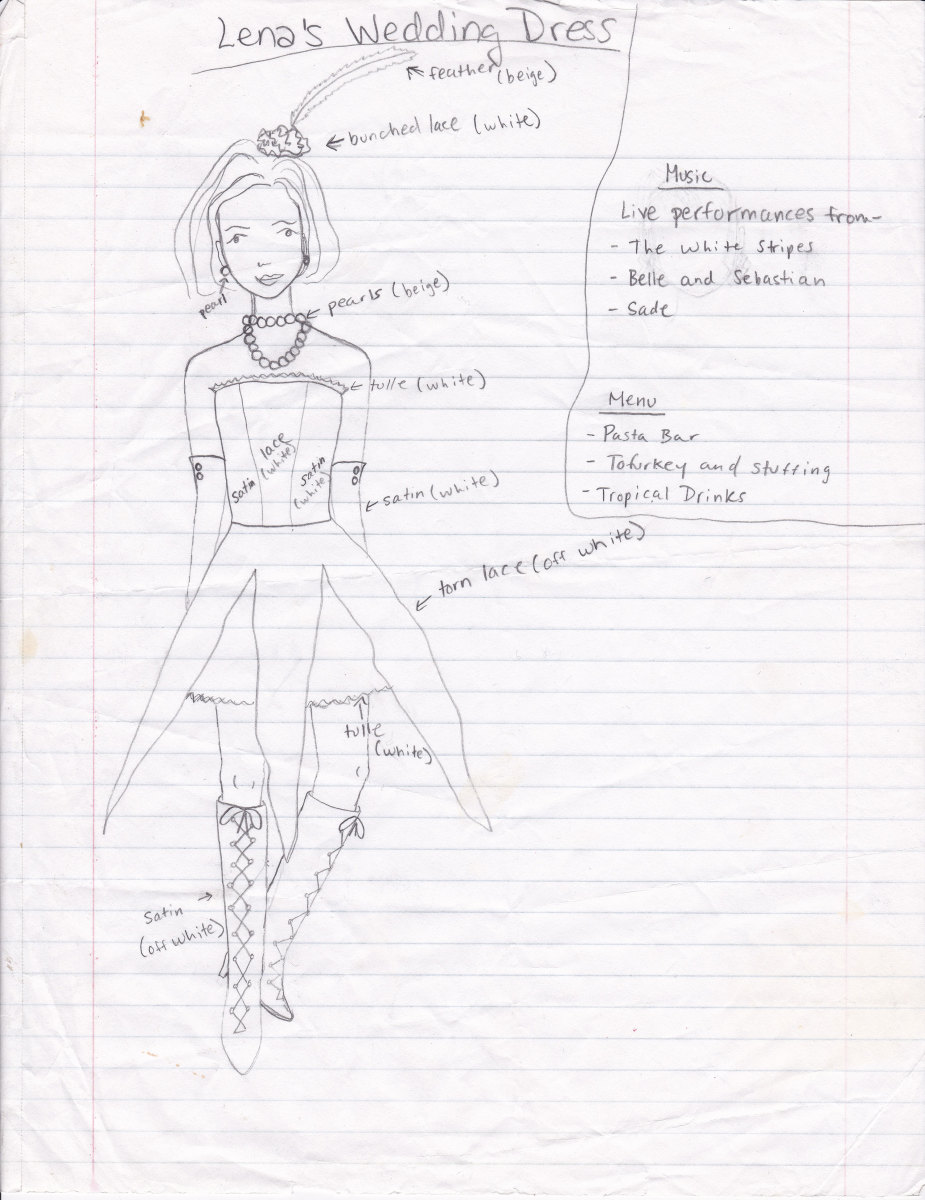 Lena's Wedding Dress
feather (beige)
bunched lace (white)
pearl
pearls (beige)
tulle (white)
lace
(white)
satin
satin
(white)
satin (white)
torn lace (off white)
tulle
(white)
satin
(off white)
Music
Live performances from-
- The White Stripes
- Belle and Sebastian
- Sade
Menu
- Pasta Bar
- Tofurkey and stuffing
- Tropical Drinks